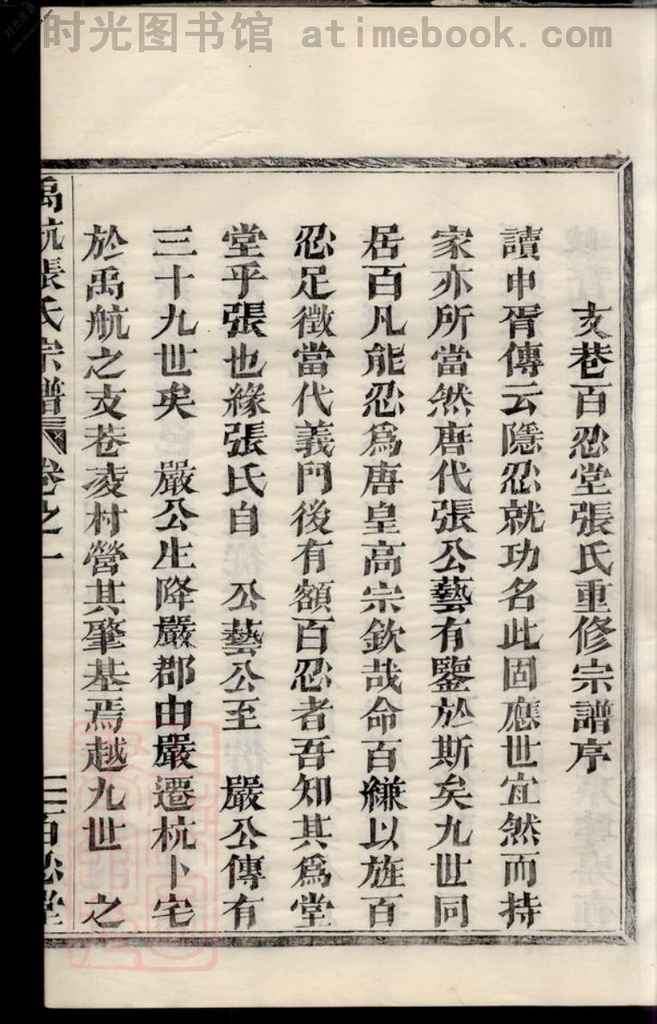 时光图书馆 atimebook.com
支巷百忍堂張氏重修宗譜序
讀申胥傳云隱忍就功名此固應世宜然而持
家亦所當然唐代張公藝有鑒於斯矣九世同
居百凡能忍爲唐皇高宗欽哉命百縑以旌百
忍足徵當代義門後有額百忍者吾知其爲堂
堂乎張也緣張氏自 公藝公至 嚴公傳有
三十九世矣 嚴公生降嚴郡由嚴遷杭卜宅
於禹航之支巷凌村營其肇基焉越九世 之
禹航張氏宗譜 卷之一 三 百忍堂